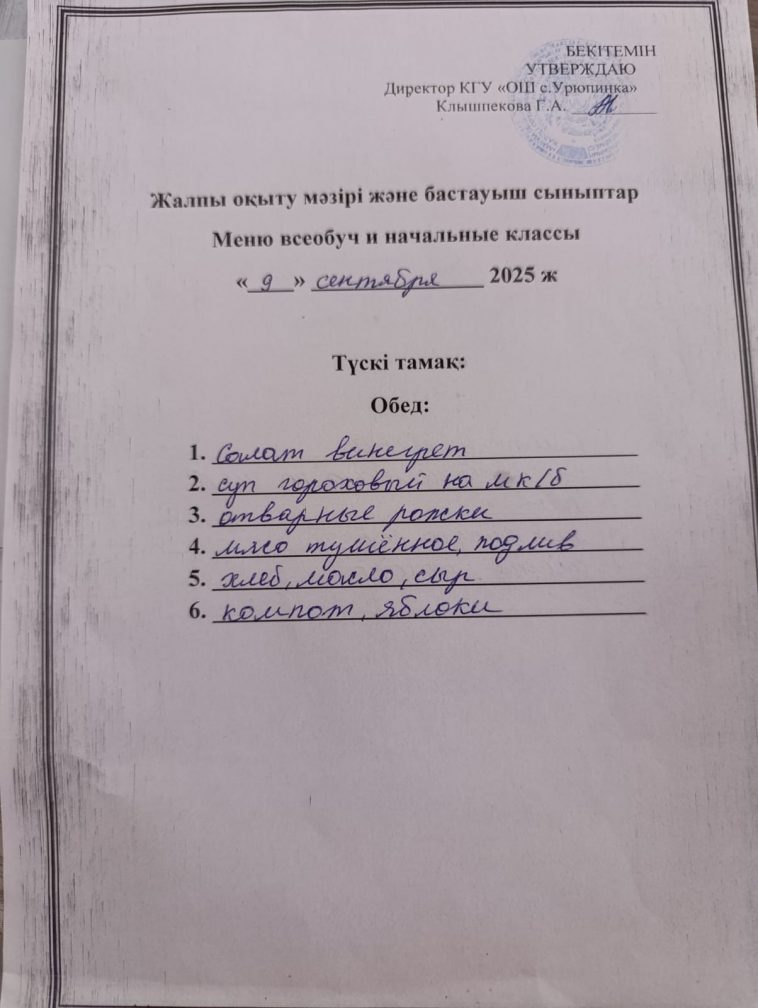 БЕКІТЕМІН
УТВЕРЖДАЮ
Директор КГУ «ОШ с.Урюпинка»
Клышпекова Г.А.
Жалпы оқыту мәзірі және бастауыш сыныптар
Меню всеобуч и начальные классы
« 9 » сентября 2025 ж
Түскі тамақ:
Обед:
1. Салат винегрет
2. суп гороховый на мк/б
3. отварные рожки
4. мясо тушённое, подлив
5. хлеб, масло, сыр
6. компот, яблоки